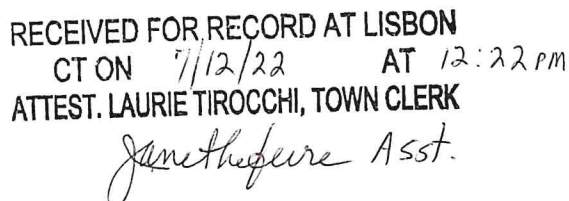 RECEIVED FOR RECORD AT LISBON
CT ON 7/12/22 AT 12:22 PM
ATTEST. LAURIE TIROCCHI, TOWN CLERK
Asst.